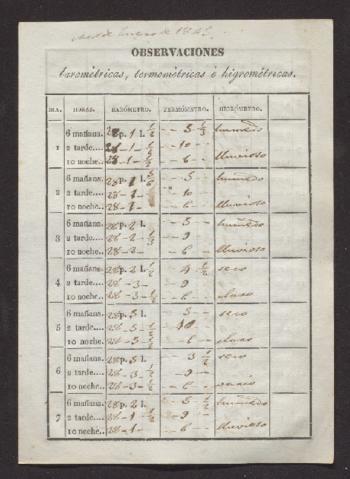 OBSERVACIONES
barométricas, termométricas é higrométricas.
DIA. HORAS. BARÓMETRO. TERMÓMETRO. HIGRÓMETRO.
6 mañana. 28 p. 1 l. 1/2 - 5 - 1/2 humedo
1 2 tarde.... 28 - 1 - 1/2 - 10 -
10 noche.. 28 - 1 - 1/2 - 6 - lluvioso
6 mañana. 28 p. 1 l. - 5 - humedo
2 2 tarde.... 28 - 1 - - 10
10 noche.. 28 - 1 - - 6 - lluvioso
6 mañana. 28 p. 2 l. - 5 - humedo
3 2 tarde.... 28 - 2 - - 9
10 noche.. 28 - 2 - - 6 - lluvioso
6 mañana. 28 p. 2 l. 1/2 - 4 1/2 seco
4 2 tarde.... 28 - 3 - - 9
10 noche.. 28 - 3 - 1/2 - 6 - claro
6 mañana. 28 p. 5 l. - 5 - seco
5 2 tarde.... 28 - 5 - 1/2 - 10 -
10 noche.. 28 - 5 - - 6 - claro
6 mañana. 28 p. 5 l. - 3 1/2 seco
6 2 tarde.... 28 - 3 - - 9 -
10 noche.. 28 - 3 - - 6 -
6 mañana. 28 p. 2 l. - 5 - humedo
7 2 tarde.... 28 - 1 - 1/2 - 9 -
10 noche.. 28 - 1 - - 6 - lluvioso